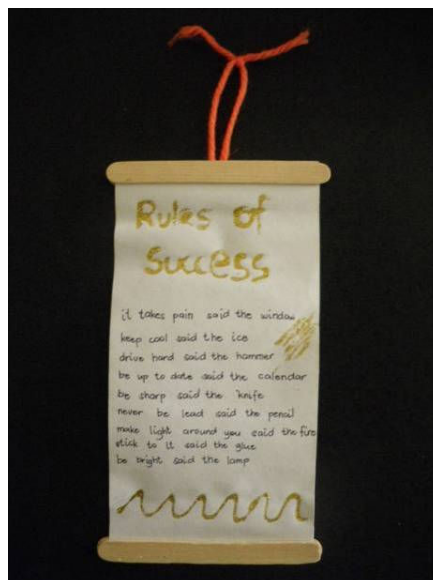 Rules of
Success
it takes pain said the window
keep cool said the ice
drive hard said the hammer
be up to date said the calendar
be sharp said the knife
never be lead said the pencil
make light around you said the fire
stick to it said the glue
be bright said the lamp